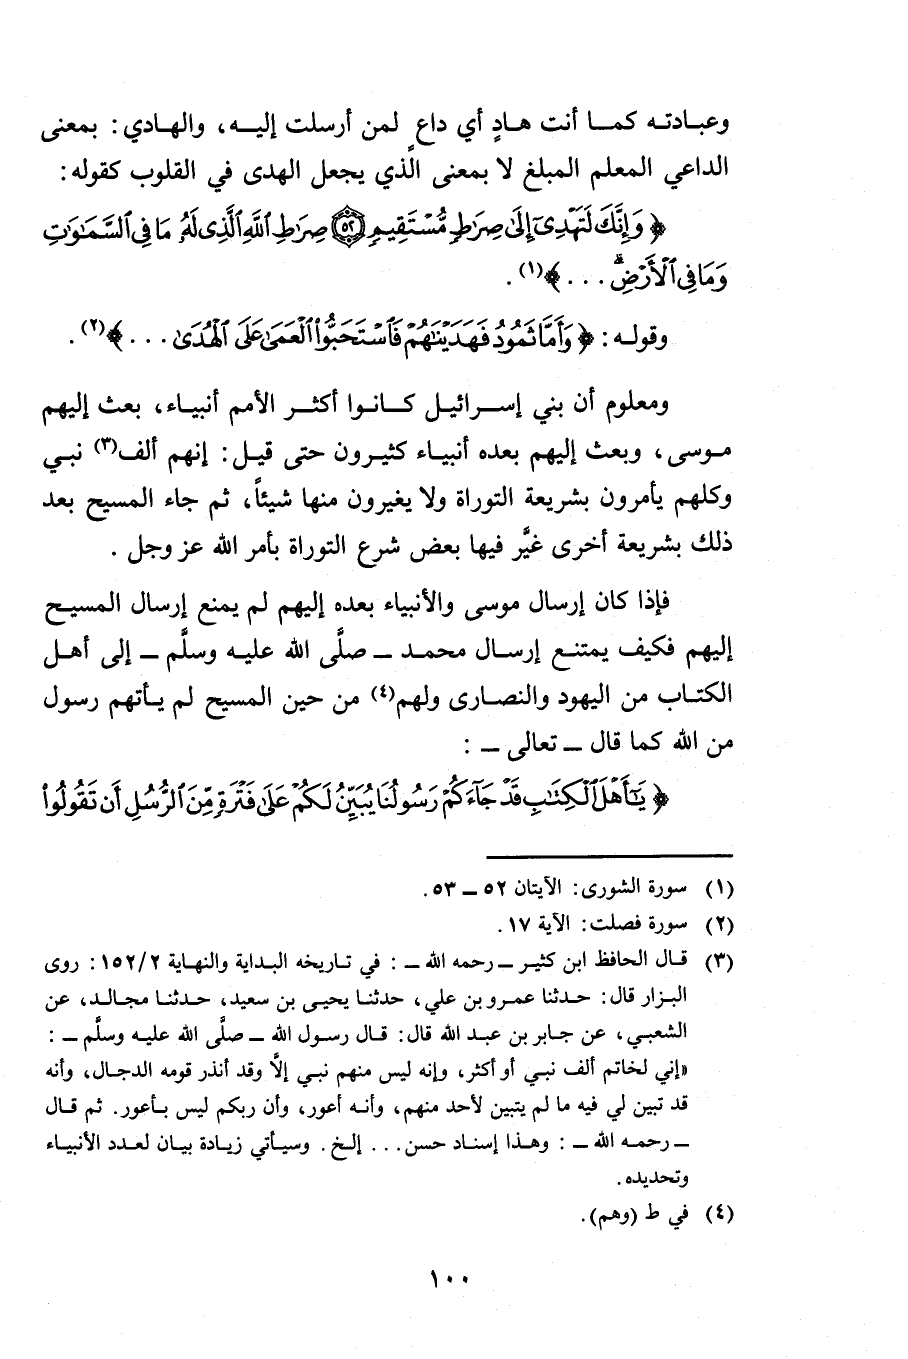 وعبادته كما أنت هادٍ أي داعٍ لمن أرسلت إليه، والهادي: بمعنى
الداعي المعلم المبلغ لا بمعنى الذي يجعل الهدى في القلوب كقوله:
﴿ وَإِنَّكَ لَتَهْدِىٓ إِلَىٰ صِرَٰطٍ مُّسْتَقِيمٍ ۝٥٢ صِرَٰطِ ٱللَّهِ ٱلَّذِى لَهُۥ مَا فِى ٱلسَّمَٰوَٰتِ
وَمَا فِى ٱلْأَرْضِۗ . . . ﴾(١) .
وقوله: ﴿ وَأَمَّا ثَمُودُ فَهَدَيْنَٰهُمْ فَٱسْتَحَبُّوا۟ ٱلْعَمَىٰ عَلَى ٱلْهُدَىٰ . . . ﴾(٢) .
ومعلوم أن بني إسرائيل كانوا أكثر الأمم أنبياء، بعث إليهم
موسى، وبعث إليهم بعده أنبياء كثيرون حتى قيل: إنهم ألف(٣) نبي
وكلهم يأمرون بشريعة التوراة ولا يغيرون منها شيئاً، ثم جاء المسيح بعد
ذلك بشريعة أخرى غيَّر فيها بعض شرع التوراة بأمر الله عز وجل .
فإذا كان إرسال موسى والأنبياء بعده إليهم لم يمنع إرسال المسيح
إليهم فكيف يمتنع إرسال محمد ــ صلَّى الله عليه وسلَّم ــ إلى أهل
الكتاب من اليهود والنصارى ولهم(٤) من حين المسيح لم يأتهم رسول
من الله كما قال ــ تعالى ــ :
﴿ يَٰٓأَهْلَ ٱلْكِتَٰبِ قَدْ جَآءَكُمْ رَسُولُنَا يُبَيِّنُ لَكُمْ عَلَىٰ فَتْرَةٍ مِّنَ ٱلرُّسُلِ أَن تَقُولُوا۟
(١) سورة الشورى: الآيتان ٥٢ ــ ٥٣ .
(٢) سورة فصلت: الآية ١٧ .
(٣) قال الحافظ ابن كثير ــ رحمه الله ــ : في تاريخه البداية والنهاية ١٥٢/٢: روى
البزار قال: حدثنا عمرو بن علي، حدثنا يحيى بن سعيد، حدثنا مجالد، عن
الشعبي، عن جابر بن عبد الله قال: قال رسول الله ــ صلَّى الله عليه وسلَّم ــ :
«إني لخاتم ألف نبي أو أكثر، وإنه ليس منهم نبي إلَّا وقد أنذر قومه الدجال، وأنه
قد تبين لي فيه ما لم يتبين لأحد منهم، وأنه أعور، وأن ربكم ليس بأعور. ثم قال
ــ رحمه الله ــ : وهذا إسناد حسن . . . إلخ . وسيأتي زيادة بيان لعدد الأنبياء
وتحديده .
(٤) في ط (وهم) .
١٠٠